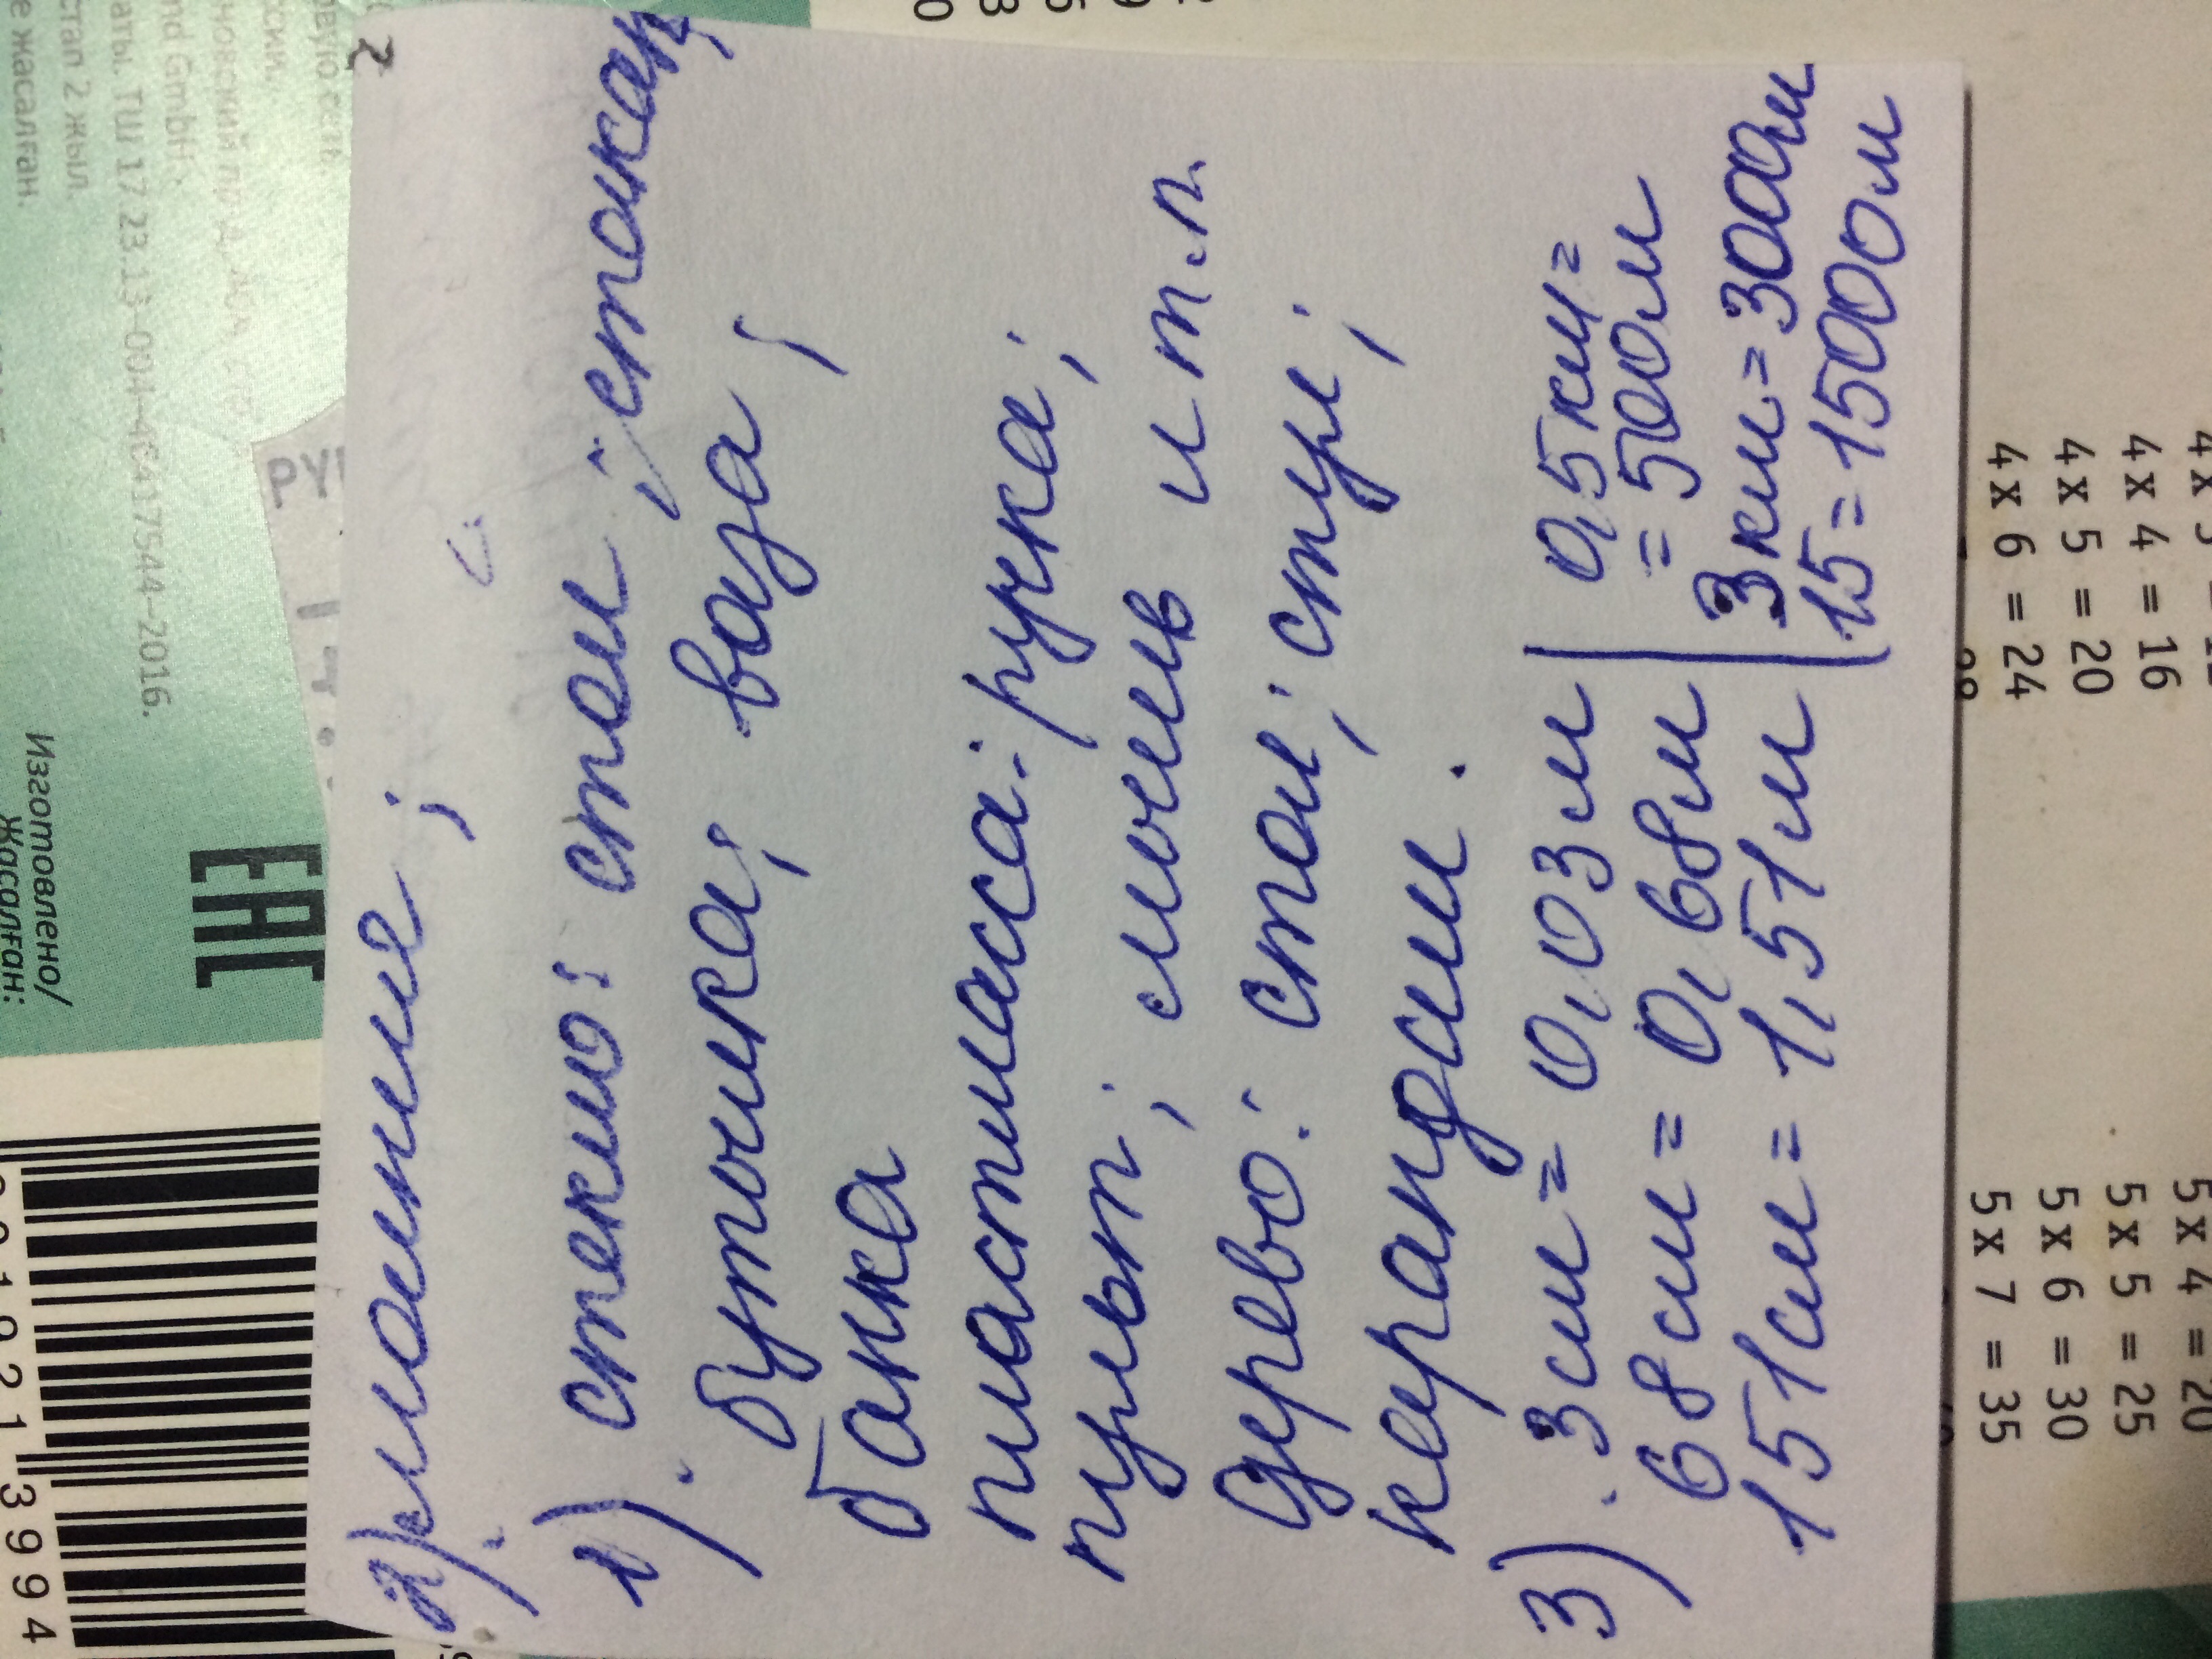 2) молния;
1) стекло: стол; стакан;
бутылка; ваза;
банка
пластмасса: ручка;
пульт; мячик и т.п.
дерево: стол; стул;
карандаш.
3) 3см = 0,03м
0,5км=
68см = 0,68м
= 500м
151см = 1,51м
3км=3000м
15=1500м
2
Изготовлено/
Жасалған:
EAC
ТШ 17.23.13-004-46417544-2016.
2 жыл.
жасалған.
4 x 4 = 16
4 x 5 = 20
4 x 6 = 24
5 x 4 = 20
5 x 5 = 25
5 x 6 = 30
5 x 7 = 35